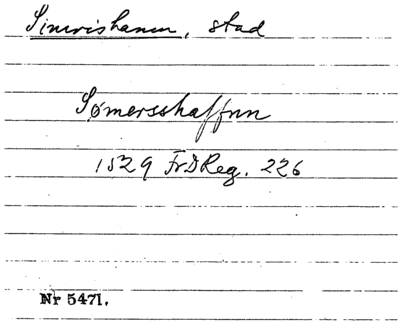 Simrishamn, stad
Sømersshaffnn
1529 FrDReg. 226
Nr 5471.